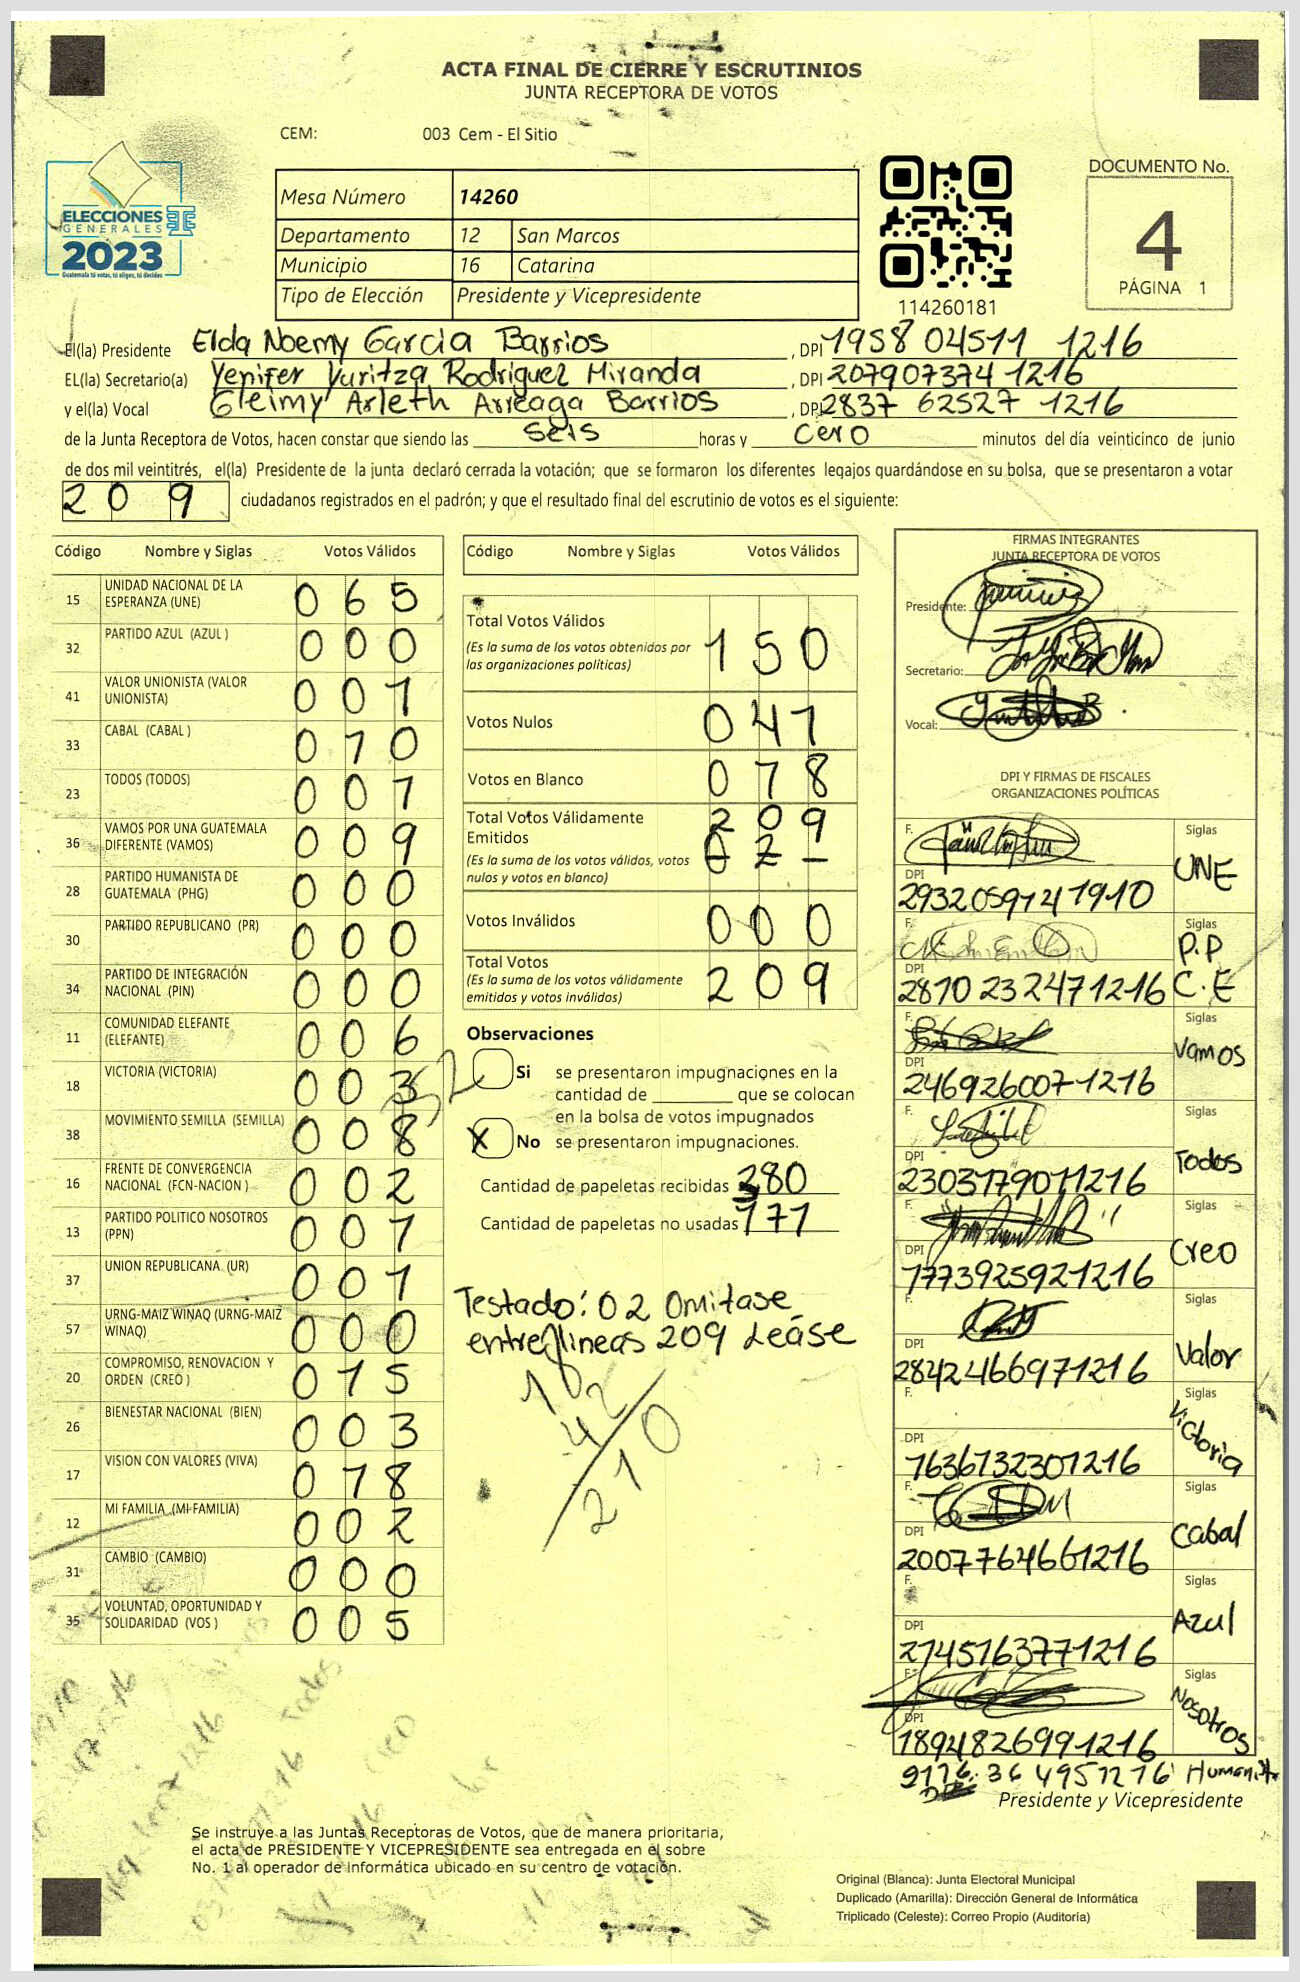 ACTA FINAL DE CIERRE Y ESCRUTINIOS
JUNTA RECEPTORA DE VOTOS
CEM: 003 Cem - El Sitio
ELECCIONES
GENERALES
2023
Guatemala tú votas, tú eliges, tú decides
Mesa Número 14260
Departamento 12 San Marcos
Municipio 16 Catarina
Tipo de Elección Presidente y Vicepresidente
114260181
DOCUMENTO No.
4
PÁGINA 1
El(la) Presidente Elda Noemy Garcia Barrios , DPI 1958 04511 1216
EL(la) Secretario(a) Yenifer Yuritza Rodriguez Miranda , DPI 207907374 1216
y el(la) Vocal Gleimy Arleth Arreaga Barrios , DPI 2837 62527 1216
de la Junta Receptora de Votos, hacen constar que siendo las seis horas y cero minutos del día veinticinco de junio
de dos mil veintitrés, el(la) Presidente de la junta declaró cerrada la votación; que se formaron los diferentes legajos quardándose en su bolsa, que se presentaron a votar
209 ciudadanos registrados en el padrón; y que el resultado final del escrutinio de votos es el siguiente:
Código Nombre y Siglas Votos Válidos
15 UNIDAD NACIONAL DE LA ESPERANZA (UNE) 065
32 PARTIDO AZUL (AZUL ) 000
41 VALOR UNIONISTA (VALOR UNIONISTA) 001
33 CABAL (CABAL ) 010
23 TODOS (TODOS) 001
36 VAMOS POR UNA GUATEMALA DIFERENTE (VAMOS) 009
28 PARTIDO HUMANISTA DE GUATEMALA (PHG) 000
30 PARTIDO REPUBLICANO (PR) 000
34 PARTIDO DE INTEGRACIÓN NACIONAL (PIN) 000
11 COMUNIDAD ELEFANTE (ELEFANTE) 006
18 VICTORIA (VICTORIA) 003
38 MOVIMIENTO SEMILLA (SEMILLA) 008
16 FRENTE DE CONVERGENCIA NACIONAL (FCN-NACION ) 002
13 PARTIDO POLITICO NOSOTROS (PPN) 001
37 UNION REPUBLICANA (UR) 001
57 URNG-MAIZ WINAQ (URNG-MAIZ WINAQ) 000
20 COMPROMISO, RENOVACION Y ORDEN (CREO ) 015
26 BIENESTAR NACIONAL (BIEN) 003
17 VISION CON VALORES (VIVA) 018
12 MI FAMILIA (MI FAMILIA) 002
31 CAMBIO (CAMBIO) 000
35 VOLUNTAD, OPORTUNIDAD Y SOLIDARIDAD (VOS ) 005
Código Nombre y Siglas Votos Válidos
Total Votos Válidos 150
(Es la suma de los votos obtenidos por
las organizaciones políticas)
Votos Nulos 041
Votos en Blanco 018
Total Votos Válidamente 209
Emitidos
(Es la suma de los votos válidos, votos
nulos y votos en blanco)
Votos Inválidos 000
Total Votos 209
(Es la suma de los votos válidamente
emitidos y votos inválidos)
Observaciones
Si se presentaron impugnaciones en la
cantidad de que se colocan
en la bolsa de votos impugnados
X No se presentaron impugnaciones.
Cantidad de papeletas recibidas 380
Cantidad de papeletas no usadas 171
Testado: 02 Omitase
entrelineas 209 Leáse
210
FIRMAS INTEGRANTES
JUNTA RECEPTORA DE VOTOS
Presidente:
Secretario:
Vocal:
DPI Y FIRMAS DE FISCALES
ORGANIZACIONES POLÍTICAS
F. Siglas
UNE
DPI
2932059141910
F. Siglas
P.P
DPI
2810 23 2471216 C.E
F. Siglas
Vamos
DPI
2469260071216
F. Siglas
Todos
DPI
2303179011216
F. Siglas
Creo
DPI
1773925921216
F. Siglas
Valor
DPI
2842466971216
F. Siglas
Victoria
DPI
1636132301216
F. Siglas
Cabal
DPI
2007764661216
F. Siglas
Azul
DPI
2745163771216
F. Siglas
Nosotros
DPI
1894826991216
Presidente y Vicepresidente
Se instruye a las Juntas Receptoras de Votos, que de manera prioritaria,
el acta de PRESIDENTE Y VICEPRESIDENTE sea entregada en el sobre
No. 1 al operador de informática ubicado en su centro de votación.
Original (Blanca): Junta Electoral Municipal
Duplicado (Amarilla): Dirección General de Informática
Triplicado (Celeste): Correo Propio (Auditoría)